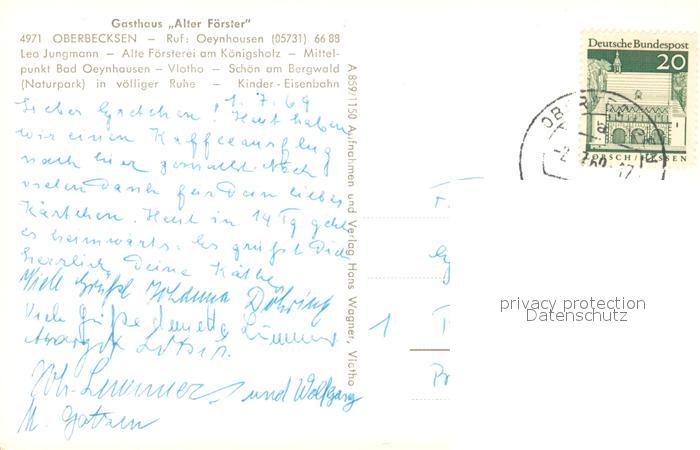 Gasthaus „Alter Förster"
4971 OBERBECKSEN – Ruf: Oeynhausen (05731) 66 88
Leo Jungmann – Alte Försterei am Königsholz – Mittel-
punkt Bad Oeynhausen – Vlotho – Schön am Bergwald
(Naturpark) in völliger Ruhe – Kinder-Eisenbahn
Lieber Gretchen! 1. 7. 69
Heut haben
wir einen Kaffeeausflug
nach hier gemacht. Noch
vielen Dank für Dein liebes
Kärtchen. Heut in 14 Tg geht
es heimwärts. Es grüßt Dich
herzlich, Deine Käthe
Viele Grüße Johanna Döhring
Viele Grüße
und Wolfgang
A 859/1150 Aufnahmen und Verlag Hans Wagner, Vlotho
Deutsche Bundespost
20
LORSCH/HESSEN
1
privacy protection
Datenschutz